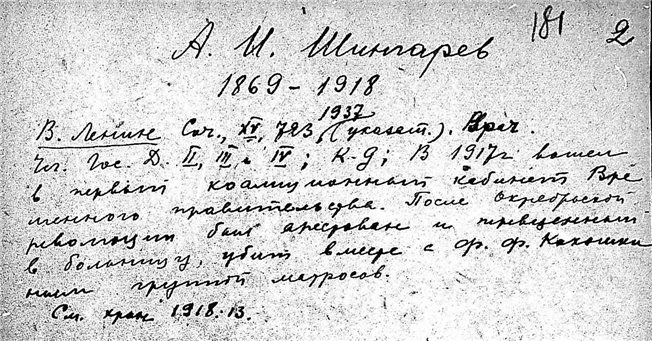 181 2
А. И. Шингарев
1869 – 1918
1937
В. Ленин Соч., XV, 723, (указат.). Врач.
Чл. Гос. Д. II, III и IV; К-д; В 1917 г вошел
в первый коалиционный кабинет Вре
менного правительства. После Октябрьской
революции был арестован и переведенный
в больницу, убит вместе с Ф. Ф. Кокошки
ным группой матросов.
См. хран 1918. 13.